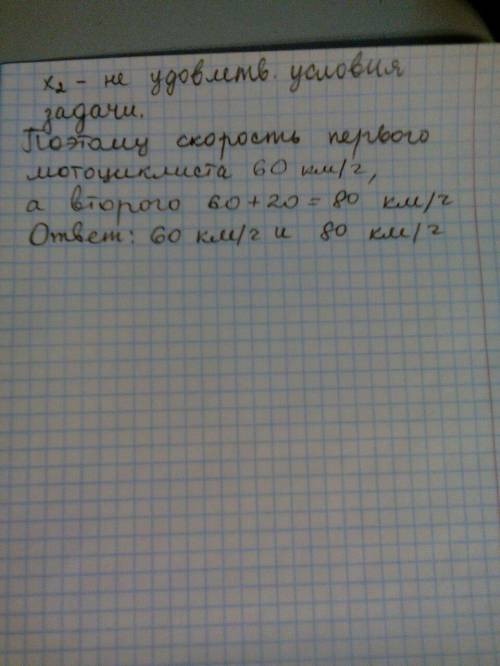 x₂ - не удовлтв. условия
задачи.
Поэтому скорость первого
мотоциклиста 60 км/ч,
а второго 60 + 20 = 80 км/ч
Ответ: 60 км/ч и 80 км/ч